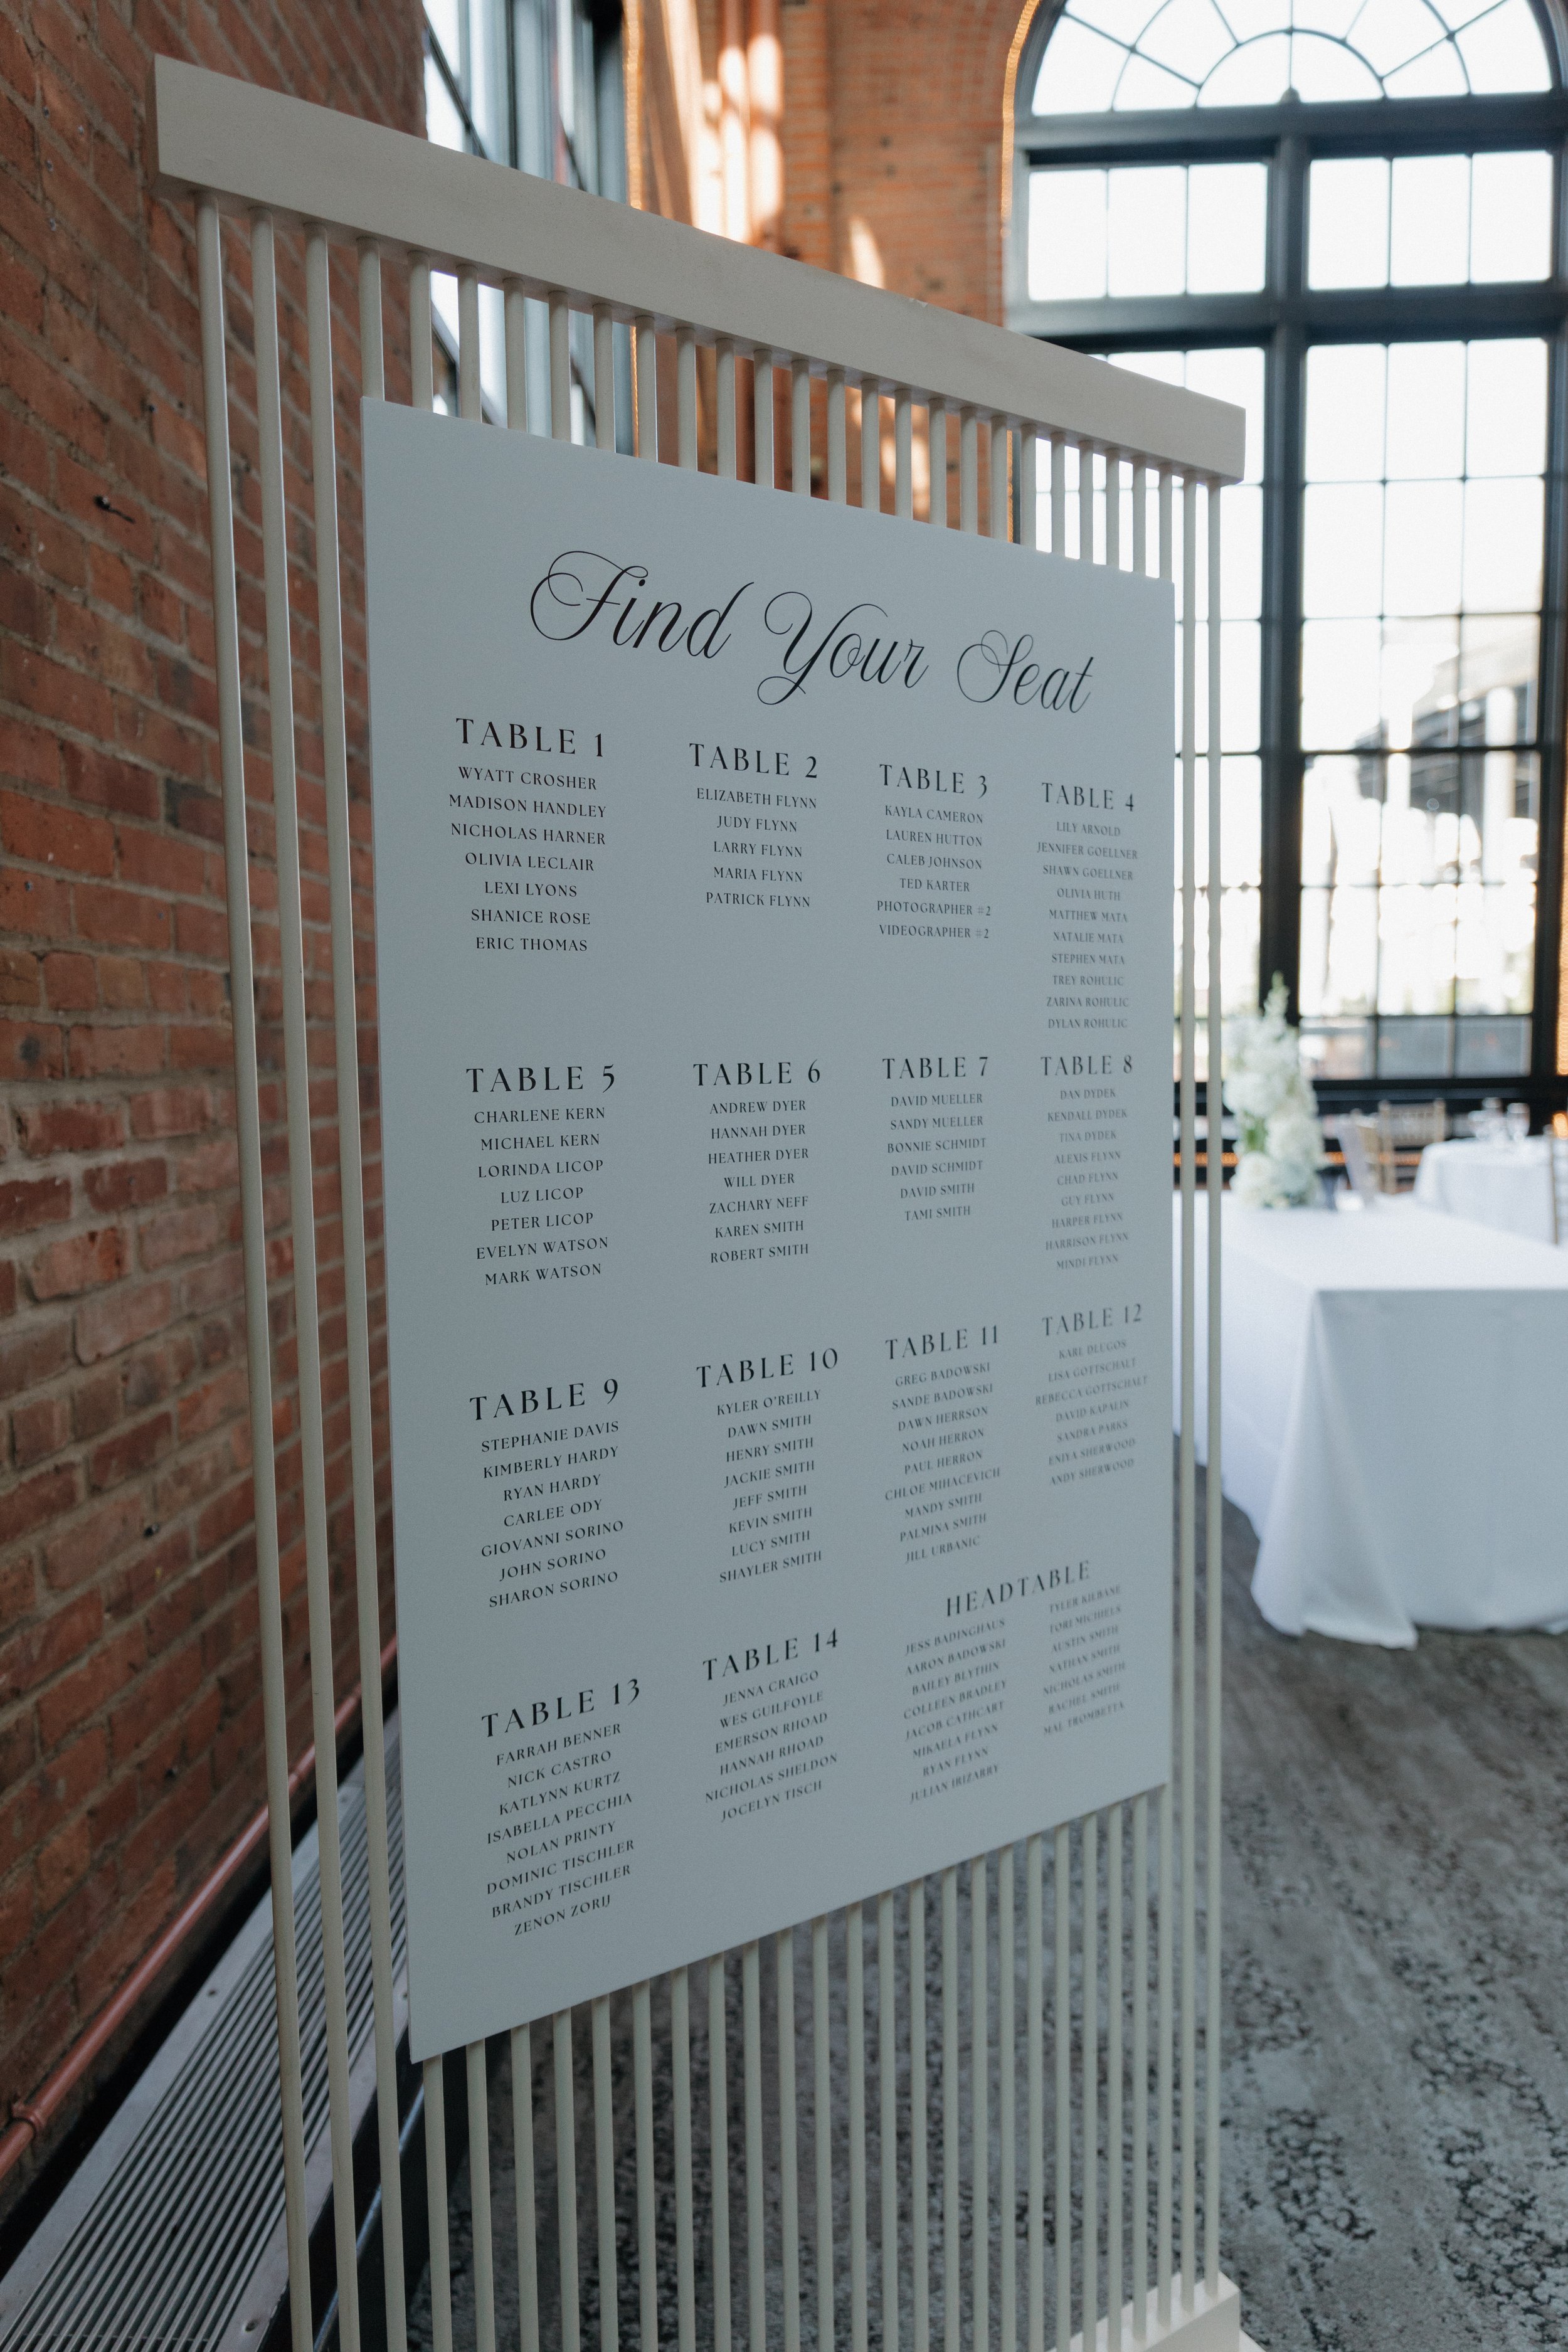 Find Your Seat
TABLE 1
WYATT CROSHER
MADISON HANDLEY
NICHOLAS HARNER
OLIVIA LECLAIR
LEXI LYONS
SHANICE ROSE
ERIC THOMAS
TABLE 2
ELIZABETH FLYNN
JUDY FLYNN
LARRY FLYNN
MARIA FLYNN
PATRICK FLYNN
TABLE 3
KAYLA CAMERON
LAUREN HUTTON
CALEB JOHNSON
TED KARTER
PHOTOGRAPHER #2
VIDEOGRAPHER #2
TABLE 4
LILY ARNOLD
JENNIFER GOELLNER
SHAWN GOELLNER
OLIVIA HUTH
MATTHEW MATA
NATALIE MATA
STEPHEN MATA
TREY ROHULIC
ZARINA ROHULIC
DYLAN ROHULIC
TABLE 5
CHARLENE KERN
MICHAEL KERN
LORINDA LICOP
LUZ LICOP
PETER LICOP
EVELYN WATSON
MARK WATSON
TABLE 6
ANDREW DYER
HANNAH DYER
HEATHER DYER
WILL DYER
ZACHARY NEFF
KAREN SMITH
ROBERT SMITH
TABLE 7
DAVID MUELLER
SANDY MUELLER
BONNIE SCHMIDT
DAVID SCHMIDT
DAVID SMITH
TAMI SMITH
TABLE 8
DAN DYDEK
KENDALL DYDEK
TINA DYDEK
ALEXIS FLYNN
CHAD FLYNN
GUY FLYNN
HARPER FLYNN
HARRISON FLYNN
MINDI FLYNN
TABLE 9
STEPHANIE DAVIS
KIMBERLY HARDY
RYAN HARDY
CARLEE ODY
GIOVANNI SORINO
JOHN SORINO
SHARON SORINO
TABLE 10
KYLER O'REILLY
DAWN SMITH
HENRY SMITH
JACKIE SMITH
JEFF SMITH
KEVIN SMITH
LUCY SMITH
SHAYLER SMITH
TABLE 11
GREG BADOWSKI
SANDE BADOWSKI
DAWN HERRSON
NOAH HERRON
PAUL HERRON
CHLOE MIHACEVICH
MANDY SMITH
PALMINA SMITH
JILL URBANIC
TABLE 12
KARL DLUGOS
LISA GOTTSCHALT
REBECCA GOTTSCHALT
DAVID KAPALIN
SANDRA PARKS
ENIYA SHERWOOD
ANDY SHERWOOD
TABLE 13
FARRAH BENNER
NICK CASTRO
KATLYNN KURTZ
ISABELLA PECCHIA
NOLAN PRINTY
DOMINIC TISCHLER
BRANDY TISCHLER
ZENON ZORIJ
TABLE 14
JENNA CRAIGO
WES GUILFOYLE
EMERSON RHOAD
HANNAH RHOAD
NICHOLAS SHELDON
JOCELYN TISCH
HEADTABLE
JESS BADINGHAUS
AARON BADOWSKI
BAILEY BLYTHIN
COLLEEN BRADLEY
JACOB CATHCART
MIKAELA FLYNN
RYAN FLYNN
JULIAN IRIZARRY
TYLER KILBANE
TORI MICHIELS
AUSTIN SMITH
NATHAN SMITH
NICHOLAS SMITH
RACHEL SMITH
MAL TROMBETTA